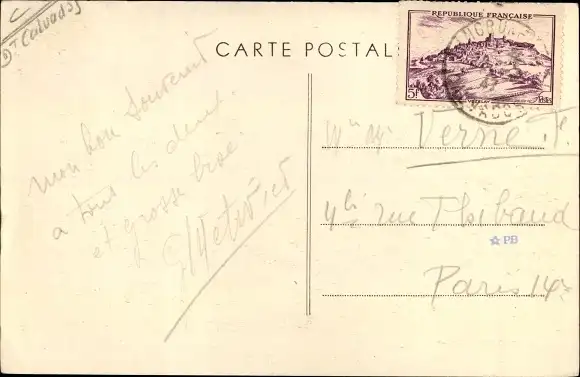 Dt Calvados
CARTE POSTALE
REPUBLIQUE FRANÇAISE
5F
mon bon souvenir
a tous les deux
et grosse bise
Mr Me Verne F.
4 bis rue Thibaud
PB
Paris 14e